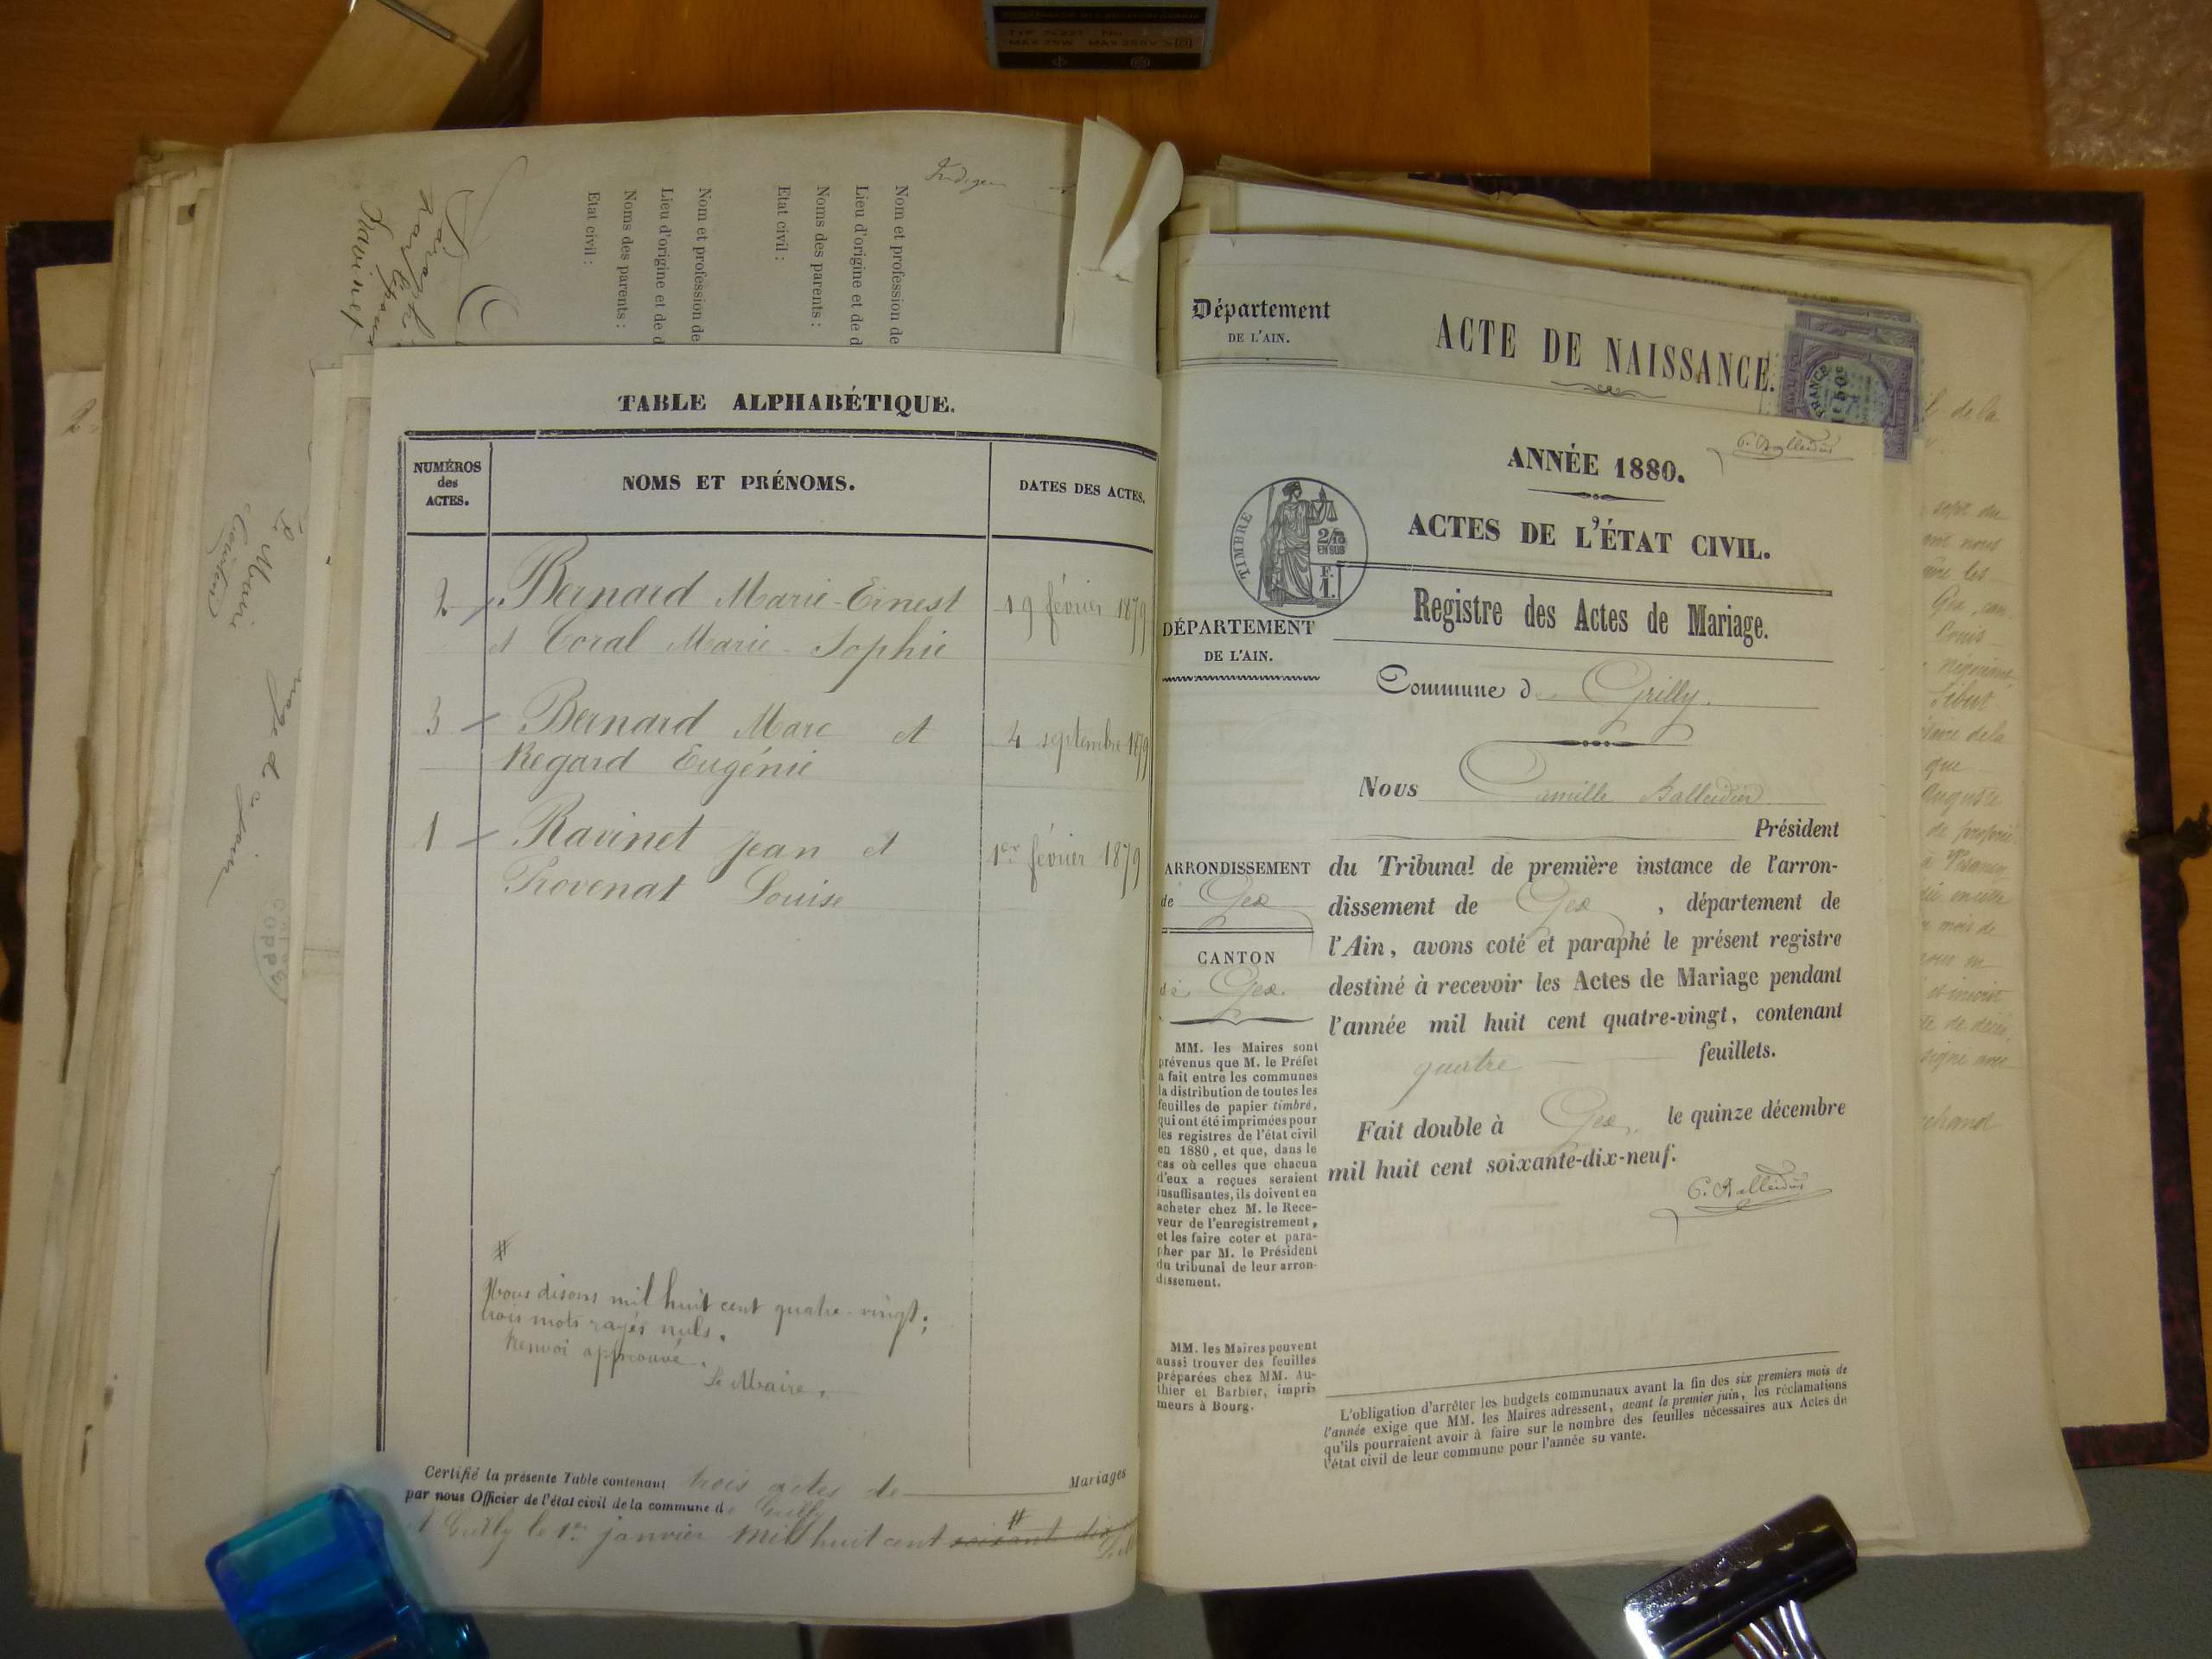 TABLE ALPHABÉTIQUE.
NUMÉROS
des
ACTES.
NOMS ET PRÉNOMS.
DATES DES ACTES.
2 Bernard Marie-Ernest 19 février 1879
et Coral Marie-Sophie
3 Bernard Marc et 4 septembre 1879
Regard Eugénie
1 Ravinet Jean et 1er février 1879
Provenat Louise
#
Nous disons mil huit cent quatre-vingt;
trois mots rayés nuls.
Renvoi approuvé.
Le Maire,
Certifié la présente Table contenant trois actes de Mariages
par nous Officier de l'état civil de la commune de Grilly
A Grilly le 1er janvier mil huit cent # soixante dix
Nom et profession de
Lieu d'origine et de d
Noms des parents :
Etat civil :
Nom et profession de
Lieu d'origine et de d
Noms des parents :
Etat civil :
Ravinet
Le Maire
Département
DE L'AIN.
ACTE DE NAISSANCE.
FRANCE
50c
C. Balleidier
ANNÉE 1880.
TIMBRE
2/10
EN SUS
F.
1.
ACTES DE L'ÉTAT CIVIL.
Registre des Actes de Mariage.
DÉPARTEMENT
DE L'AIN.
Commune de Grilly.
Nous Camille Balleidier
Président
du Tribunal de première instance de l'arron-
dissement de Gex, département de
l'Ain, avons coté et paraphé le présent registre
destiné à recevoir les Actes de Mariage pendant
l'année mil huit cent quatre-vingt, contenant
quatre feuillets.
Fait double à Gex, le quinze décembre
mil huit cent soixante-dix-neuf.
C. Balleidier
ARRONDISSEMENT
de Gex
CANTON
de Gex.
MM. les Maires sont
prévenus que M. le Préfet
a fait entre les communes
la distribution de toutes les
feuilles de papier timbré,
qui ont été imprimées pour
les registres de l'état civil
en 1880, et que, dans le
cas où celles que chacun
d'eux a reçues seraient
insuffisantes, ils doivent en
acheter chez M. le Rece-
veur de l'enregistrement,
et les faire coter et para-
pher par M. le Président
du tribunal de leur arron-
dissement.
MM. les Maires peuvent
aussi trouver des feuilles
préparées chez MM. Au-
thier et Barbier, impri-
meurs à Bourg.
L'obligation d'arrêter les budgets communaux avant la fin des six premiers mois de
l'année exige que MM. les Maires adressent, avant le premier juin, les réclamations
qu'ils pourraient avoir à faire sur le nombre des feuilles nécessaires aux Actes de
l'état civil de leur commune pour l'année su vante.